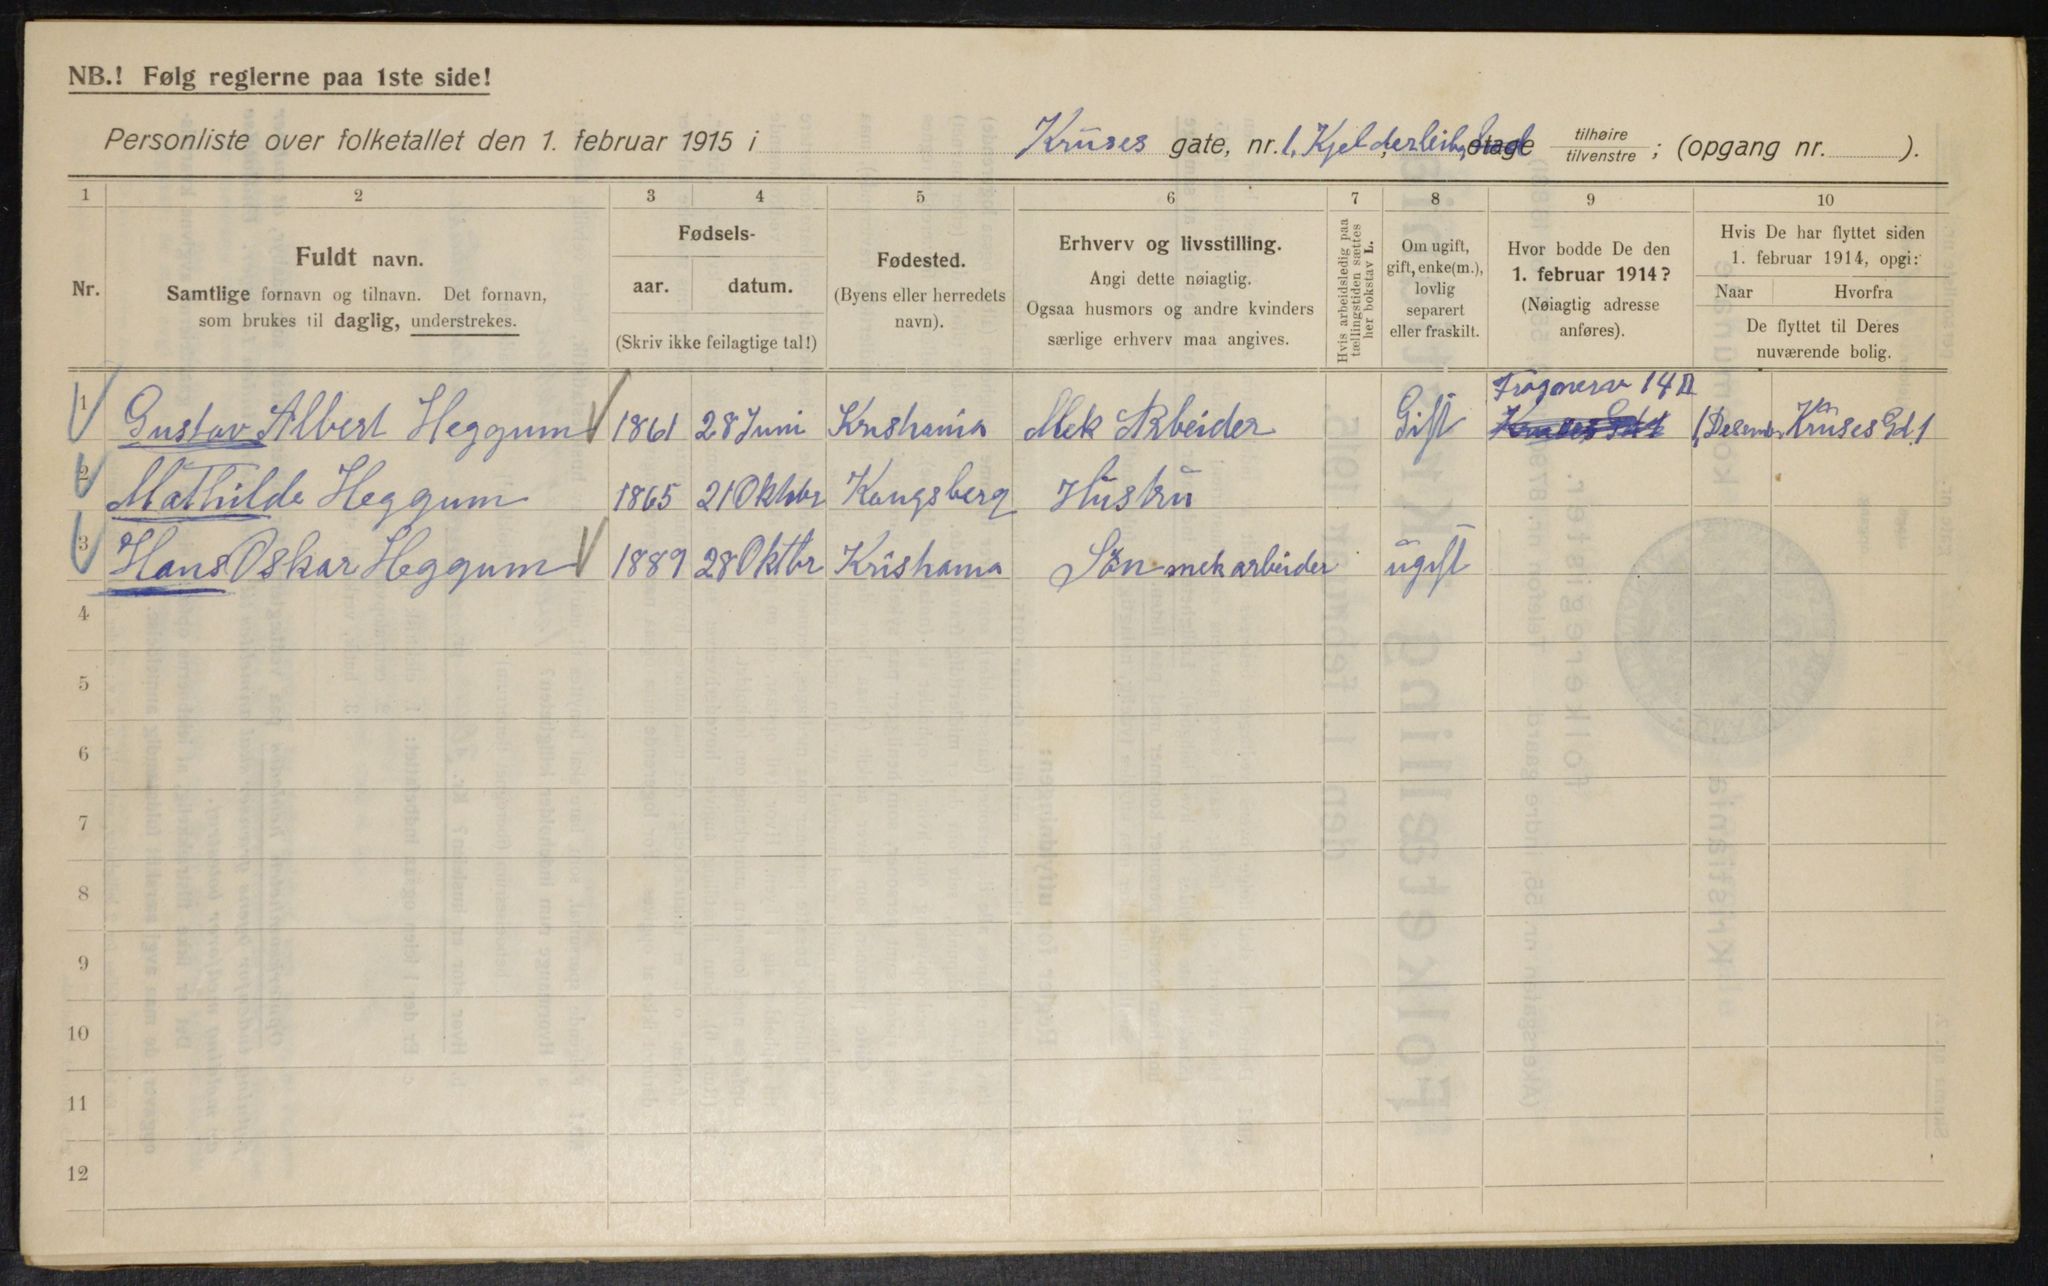 NB.! Følg reglerne paa 1ste side!
Personliste over folketallet den 1. februar 1915 i Kruses gate, nr. 1, etage tilhøire / tilvenstre ; (opgang nr. ).
1 2 3 4 5 6 7 8 9 10
Nr.
Fuldt navn.
Samtlige fornavn og tilnavn. Det fornavn,
som brukes til daglig, understrekes.
Fødsels-
aar. datum.
(Skriv ikke feilagtige tal!)
Fødested.
(Byens eller herredets
navn).
Erhverv og livsstilling.
Angi dette nøiagtig.
Ogsaa husmors og andre kvinders
særlige erhverv maa angives.
Hvis arbeidsledig paa
tællingstiden sættes
her bokstav L.
Om ugift,
gift, enke(m.),
lovlig
separert
eller fraskilt.
Hvor bodde De den
1. februar 1914?
(Nøiagtig adresse
anføres).
Hvis De har flyttet siden
1. februar 1914, opgi:
Naar Hvorfra
De flyttet til Deres
nuværende bolig.
Frognerv 14 II
1 Gustav Albert Heggum 1861 28 Juni Krishania Mek Arbeider Gift 1, Desember Kruses Gd 1
2 Mathilde Heggum 1865 21 Oktobr Kongsberg Hustru
3 Hans Oskar Heggum 1889 28 Oktbr Krishania Søn mekarbeider ugift
4
5
6
7
8
9
10
11
12